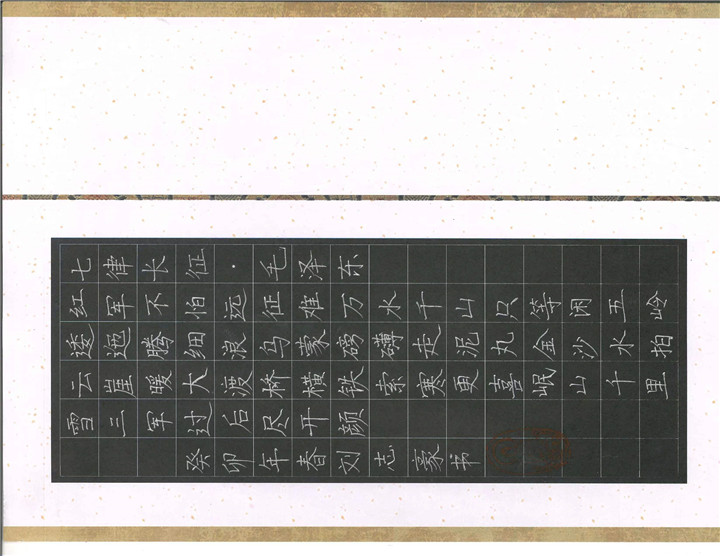 七律长征·毛泽东
红军不怕远征难万水千山只等闲五岭
逶迤腾细浪乌蒙磅礴走泥丸金沙水拍
云崖暖大渡桥横铁索寒更喜岷山千里
雪三军过后尽开颜
癸卯年春刘志豪书